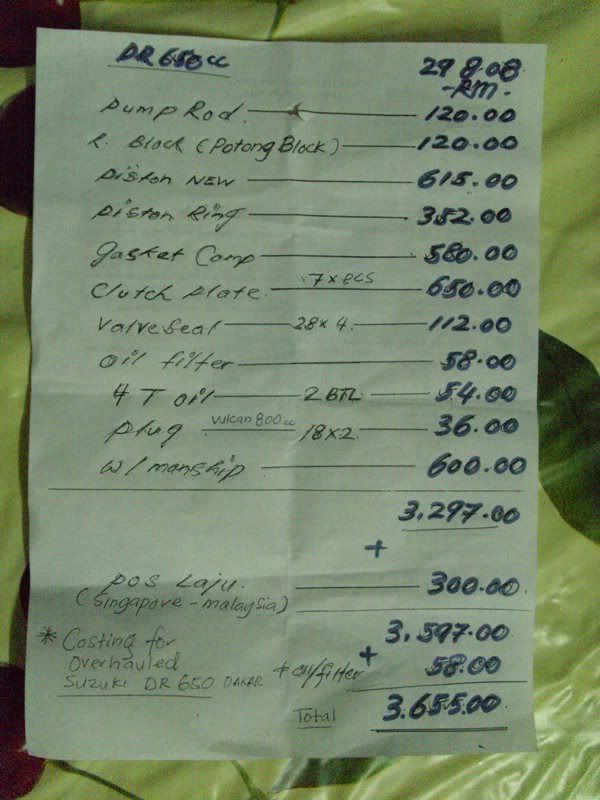 DR 650cc 29 8.08
-RM-
Pump Rod. 120.00
R. Block (Potong Block) 120.00
Piston NEW 615.00
Piston Ring 352.00
Gasket Comp 580.00
Clutch Plate. 7 x PCS 650.00
Valve Seal 28 x 4. 112.00
Oil filter 58.00
4 T oil 2 BTL 54.00
Plug Vulcan 800cc 18 x 2. 36.00
W/manship 600.00
3.297.00
+
Pos Laju. 300.00
(Singapore - malaysia)
3.597.00
* Costing for
Overhauled + oil/filter + 58.00
Suzuki DR 650 DAKAR
Total 3.655.00